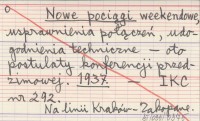 Nowe pociągi weekendowe,
usprawnienia połączeń, udo-
godnienia techniczne — oto
postulaty konferencji przed-
zimowej. 1937. — IKC
nr 292.
Na linii Kraków-Zakopane.